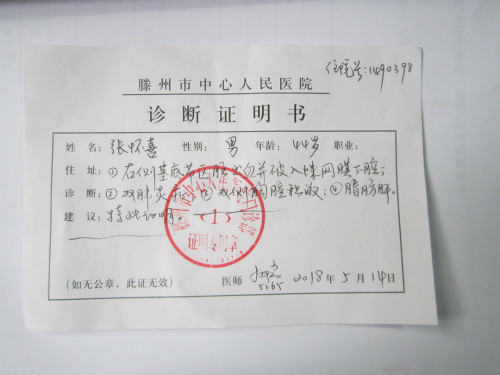 住院号:1490398
滕州市中心人民医院
诊断证明书
姓名: 张怀喜 性别: 男 年龄: 44岁 职业:
住址: ①右侧基底节区脑出血并破入蛛网膜下腔;
诊断: ②双肺炎症; ③双侧胸腔积液; ④脂肪肝。
建议: 特此证明。
<1>
证明专用章
(如无公章,此证无效) 医师 5265 2018年5月14日